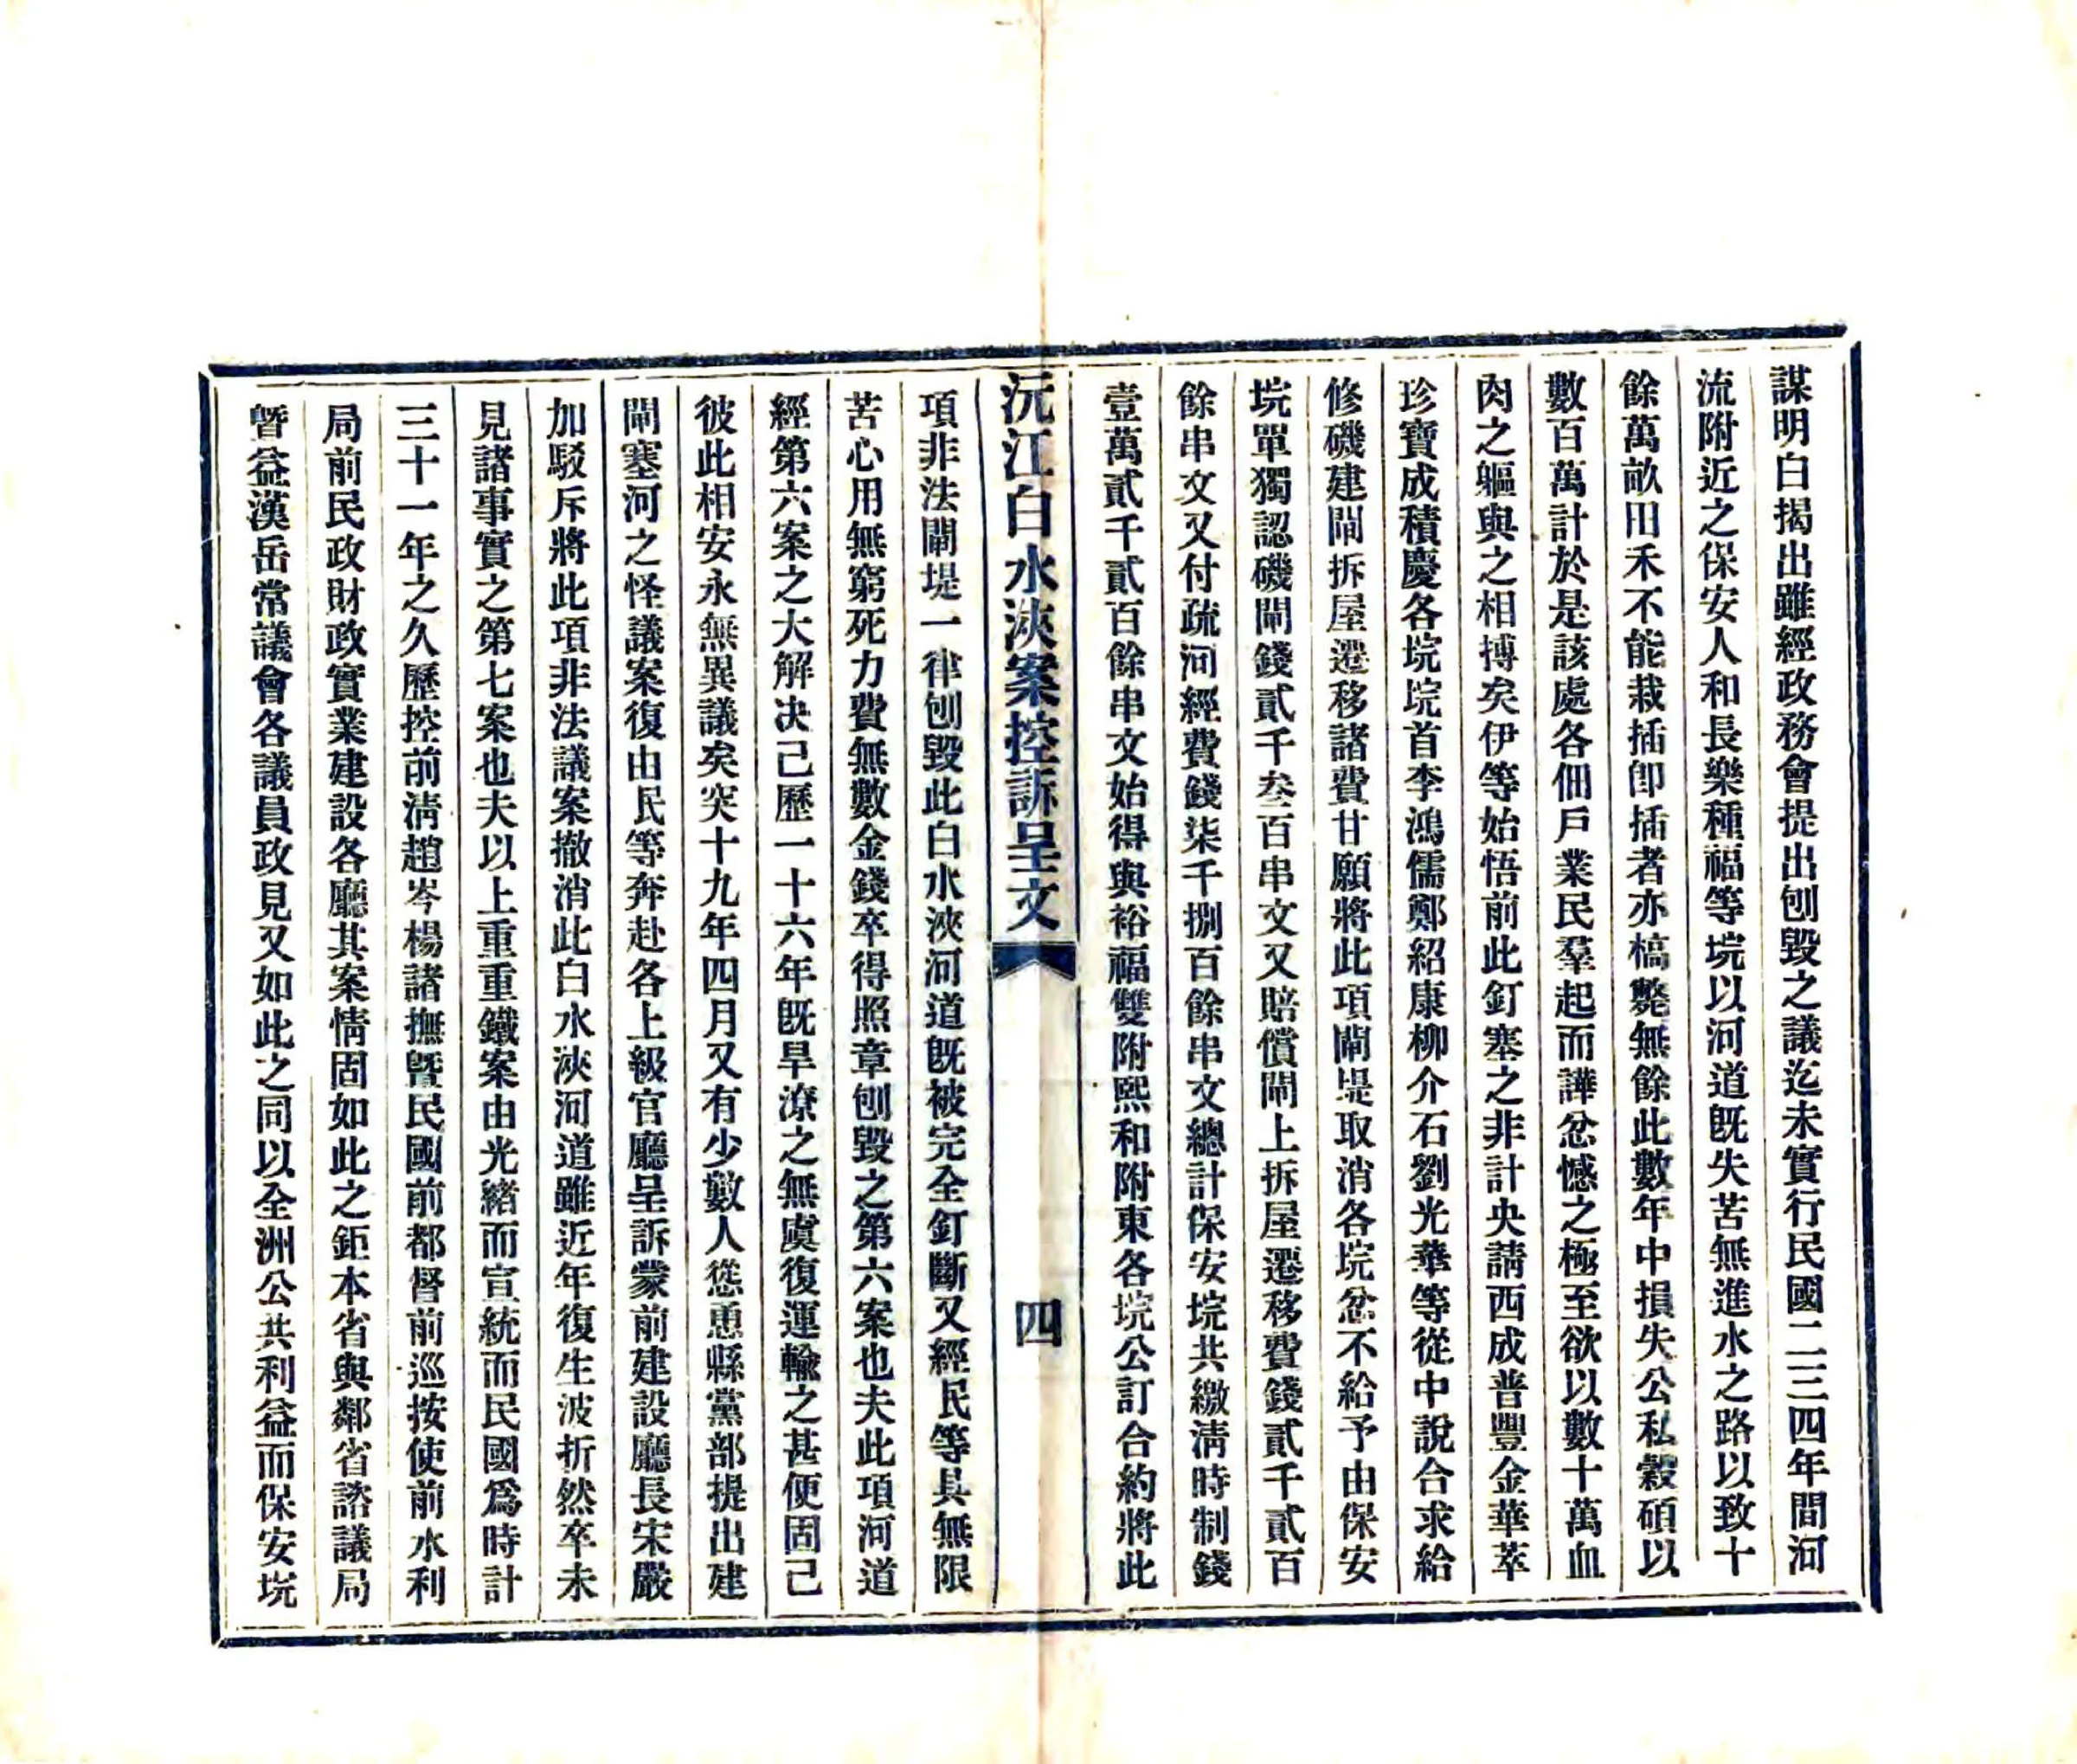 謀明白揭出雖經政務會提出刨毀之議迄未實行民國二三四年間河
流附近之保安人和長樂種福等垸以河道旣失苦無進水之路以致十
餘萬畝田禾不能栽插卽插者亦槁斃無餘此數年中損失公私穀碩以
數百萬計於是該處各佃戶業民羣起而譁忿憾之極至欲以數十萬血
肉之軀與之相搏矣伊等始悟前此釘塞之非計央請西成普豐金華萃
珍寶成積慶各垸垸首李鴻儒鄭紹康柳介石劉光華等從中說合求給
修磯建閘拆屋遷移諸費甘願將此項閘堤取消各垸忿不給予由保安
垸單獨認磯閘錢貳千叁百串文又賠償閘上拆屋遷移費錢貳千貳百
餘串文又付疏河經費錢柒千捌百餘串文總計保安垸共繳淸時制錢
壹萬貳千貳百餘串文始得與裕福雙附熙和附東各垸公訂合約將此
沅江白水浹案控訴呈文
四
項非法閘堤一律刨毀此白水浹河道旣被完全釘斷又經民等具無限
苦心用無窮死力費無數金錢卒得照章刨毀之第六案也夫此項河道
經第六案之大解決己歷一十六年旣旱潦之無虞復運輸之甚便固己
彼此相安永無異議矣突十九年四月又有少數人慫恿縣黨部提出建
閘塞河之怪議案復由民等奔赴各上級官廳呈訴蒙前建設廳長宋嚴
加駁斥將此項非法議案撤消此白水浹河道雖近年復生波折然卒未
見諸事實之第七案也夫以上重重鐵案由光緒而宣統而民國爲時計
三十一年之久歷控前淸趙岑楊諸撫暨民國前都督前巡按使前水利
局前民政財政實業建設各廳其案情固如此之鉅本省與鄰省諮議局
暨益漢岳常議會各議員政見又如此之同以全洲公共利益而保安垸